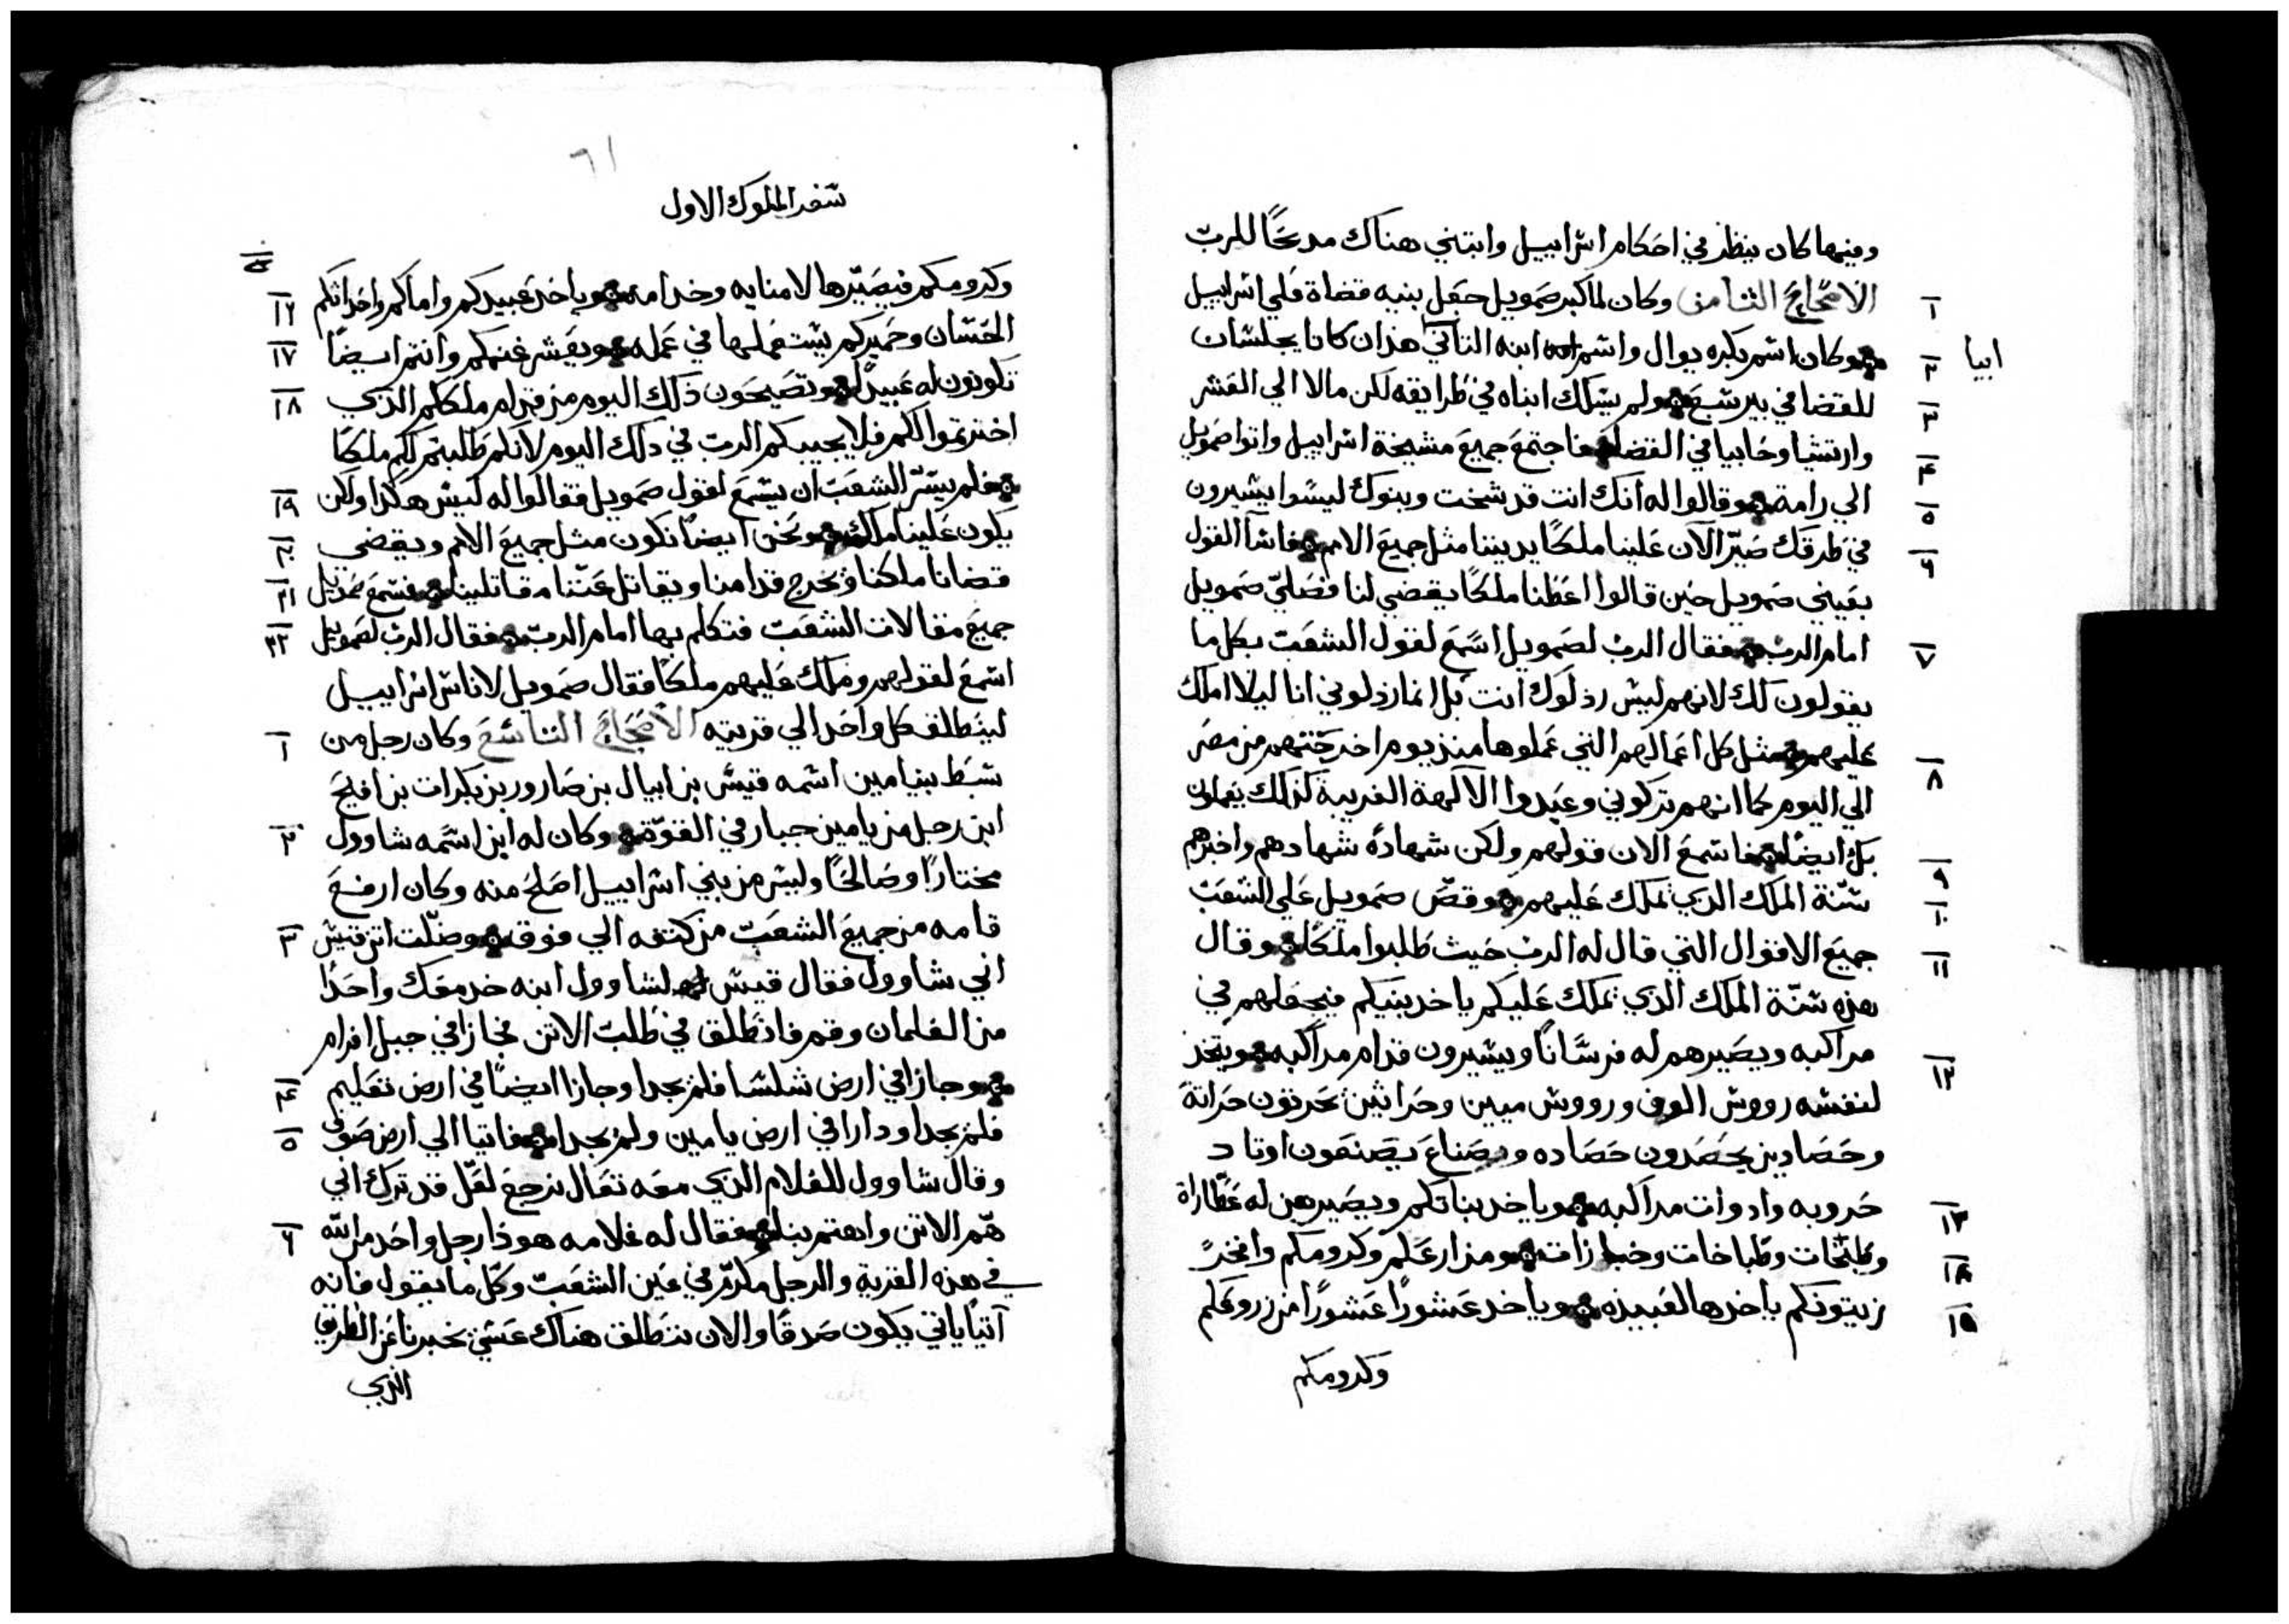 وفيها كان ينظر في احكام اسراييل وابتني هناك مدبحًا للرب
الاصحاح الثامن وكان لما كبر صمويل جعل بنيه قضاة علي اسراييل
١
وكان اسم بكره يوال واسم ابنه التاني هذان كانا يجلسان
٢
ابيا
للقضا في بير سبع ولم يسلك ابناه في طرايقه لكن مالا الي القشر
٣
وارتشيا وحابيا في القضا فاجتمع جميع مشيخة اسراييل واتوا صمويل
٤
الي رامة وقالوا له انك انت قد شخت وبنوك ليسوا يسيرون
٥
في طرقك صيّر الآن علينا ملكًا يديننا مثل جميع الامم فاسآ القول
٦
بعيني صمويل حين قالوا اعطنا ملكًا يقضي لنا فصلي صمويل
امام الرب فقال الرب لصمويل اسمع لقول الشعب بكل ما
٧
يقولون لك لانهم ليس رذلوك انت بل انما رذلوني انا ليلا املك
عليهم مثل كل اعمالهم التي عملوها منذ يوم اخرجتهم من مصر
٨
الي اليوم كما انهم تركوني وعبدوا الآلهة الغريبة كذلك يفعلون
بك ايضًا فاسمع الان قولهم ولكن شهادةً شهادهم واخبرهم
٩
سنّة الملك الذي يملك عليهم وقصّ صمويل علي الشعب
١٠
جميع الاقوال التي قال له الرب حيث طلبوا ملكًا وقال
١١
هذه سنّة الملك الذي يملك عليكم ياخد بنيكم فيجعلهم في
مراكبه ويصيرهم له فرسانًا ويسيرون قدام مراكبه ويتخذ
١٢
لنفسه رووس الوف ورووس ميين وحراثين يحرثون حراثة
وحصادين يحصدون حصاده وصناع يصنعون اوتاد
حروبه وادوات مراكبه وياخد بناتكم ويصيرهن له عطّاراة
١٣
وطبّخات وطباخات وخبازات ومزارعكم وكرومكم وافخر
١٤
زيتونكم ياخدها لعبيده وياخد عشورًا عشورًا من زروعكم
١٥
وكرومكم
٦١
سفر الملوك الاول
وكرومكم فيصيّرها لامنايه وخدامه وياخد عبيدكم واماكم واحداثكم
١٦
الحسان وحميركم يستعملها في عمله ويعشر غنمكم وانتم ايضًا
١٧
تكونون له عبيدًا وتصيحون ذلك اليوم من قدام ملككم الذي
١٨
اخترتموا لكم فلا يجيبكم الرب في دلك اليوم لانكم طلبتم لكم ملكًا
فلم يسرّ الشعب ان يسمع لقول صمويل فقالوا له ليس هكذا ولكن
١٩
يكون علينا ملك ونحن ايضًا نكون مثل جميع الامم ويقضي
٢٠
قضانا ملكنا ويخرج قدامنا ويقاتل عنّنا مقاتلينا فسمع صمويل
٢١
جميع مقالات الشعب فتكلم بها امام الرب فقال الرب لصمويل
٢٢
اسمع لقولهم وملك عليهم ملكًا فقال صمويل لاناس اسراييل
لينطلق كل واحد الي قريته الاصحاح التاسع وكان رجل من
١
سبط بنيامين اسمه قيس بن ابيال بن صارور بن بكرات بن افيح
ابن رجل من يامين جبار في القوّة وكان له ابن اسمه شاوول
٢
مختارًا وصالحًا وليس من بني اسراييل اصلح منه وكان ارفع
قامه من جميع الشعب من كتفه الي فوق وضلّت اتن قيس
٣
ابي شاوول فقال قيس لشاوول ابنه خد معك واحدًا
من الغلمان وقم فانطلق في طلب الاتن فجازا في جبل افرام
وجازا في ارض شلشا فلم يجدا وجازا ايضًا في ارض تعليم
٤
فلم يجدا ودارا في ارض يامين ولم يجدا فاتيا الي ارض صوف
٥
وقال شاوول للغلام الذي معه تعال نرجع لعلّ قد ترك ابي
همّ الاتن واهتم بنا فقال له غلامه هوذا رجل واحد من الله
٦
في هذه القرية والرجل مكرّم في عين الشعب وكل ما يقول فانه
آتيًا ياتي يكون صدقًا والان ننطلق هناك عسي يخبرنا عن الطريق
الذي